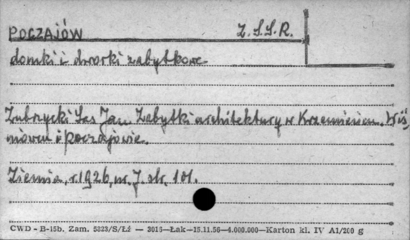 POCZAJÓW Z.S.S.R.
domki i dworki zabytkowe
Zubrzycki Sas Jan. Zabytki architektury w Krzemieńcu, Wiś,
niowcu i Poczajowie.
Ziemia, r.1926, nr. 7. str. 101.
CWD - B-15b. Zam. 5023/S/Łd — 3015—Łak—15.11.50—4.000.000—Karton kl. IV A1/200 g